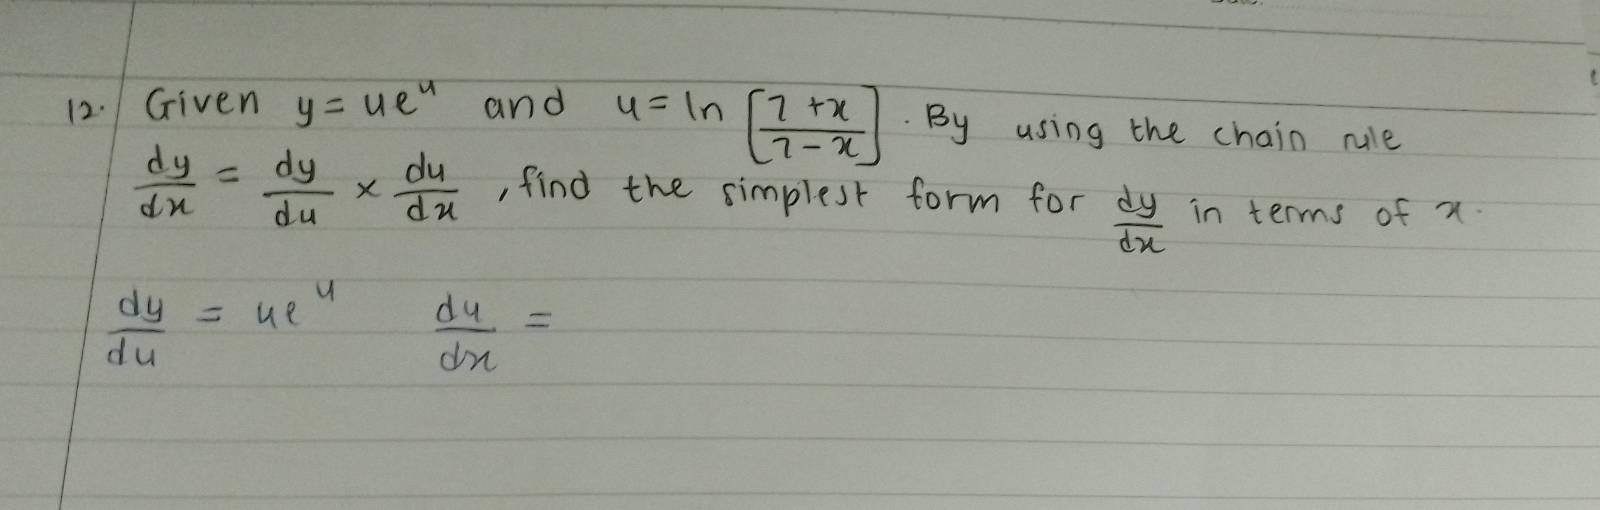 12. Given y = ue^u and u = ln [7 + x / 7 - x]. By using the chain rule
dy/dx = dy/du × du/dx, find the simplest form for dy/dx in terms of x.
dy/du = ue^u du/dx =